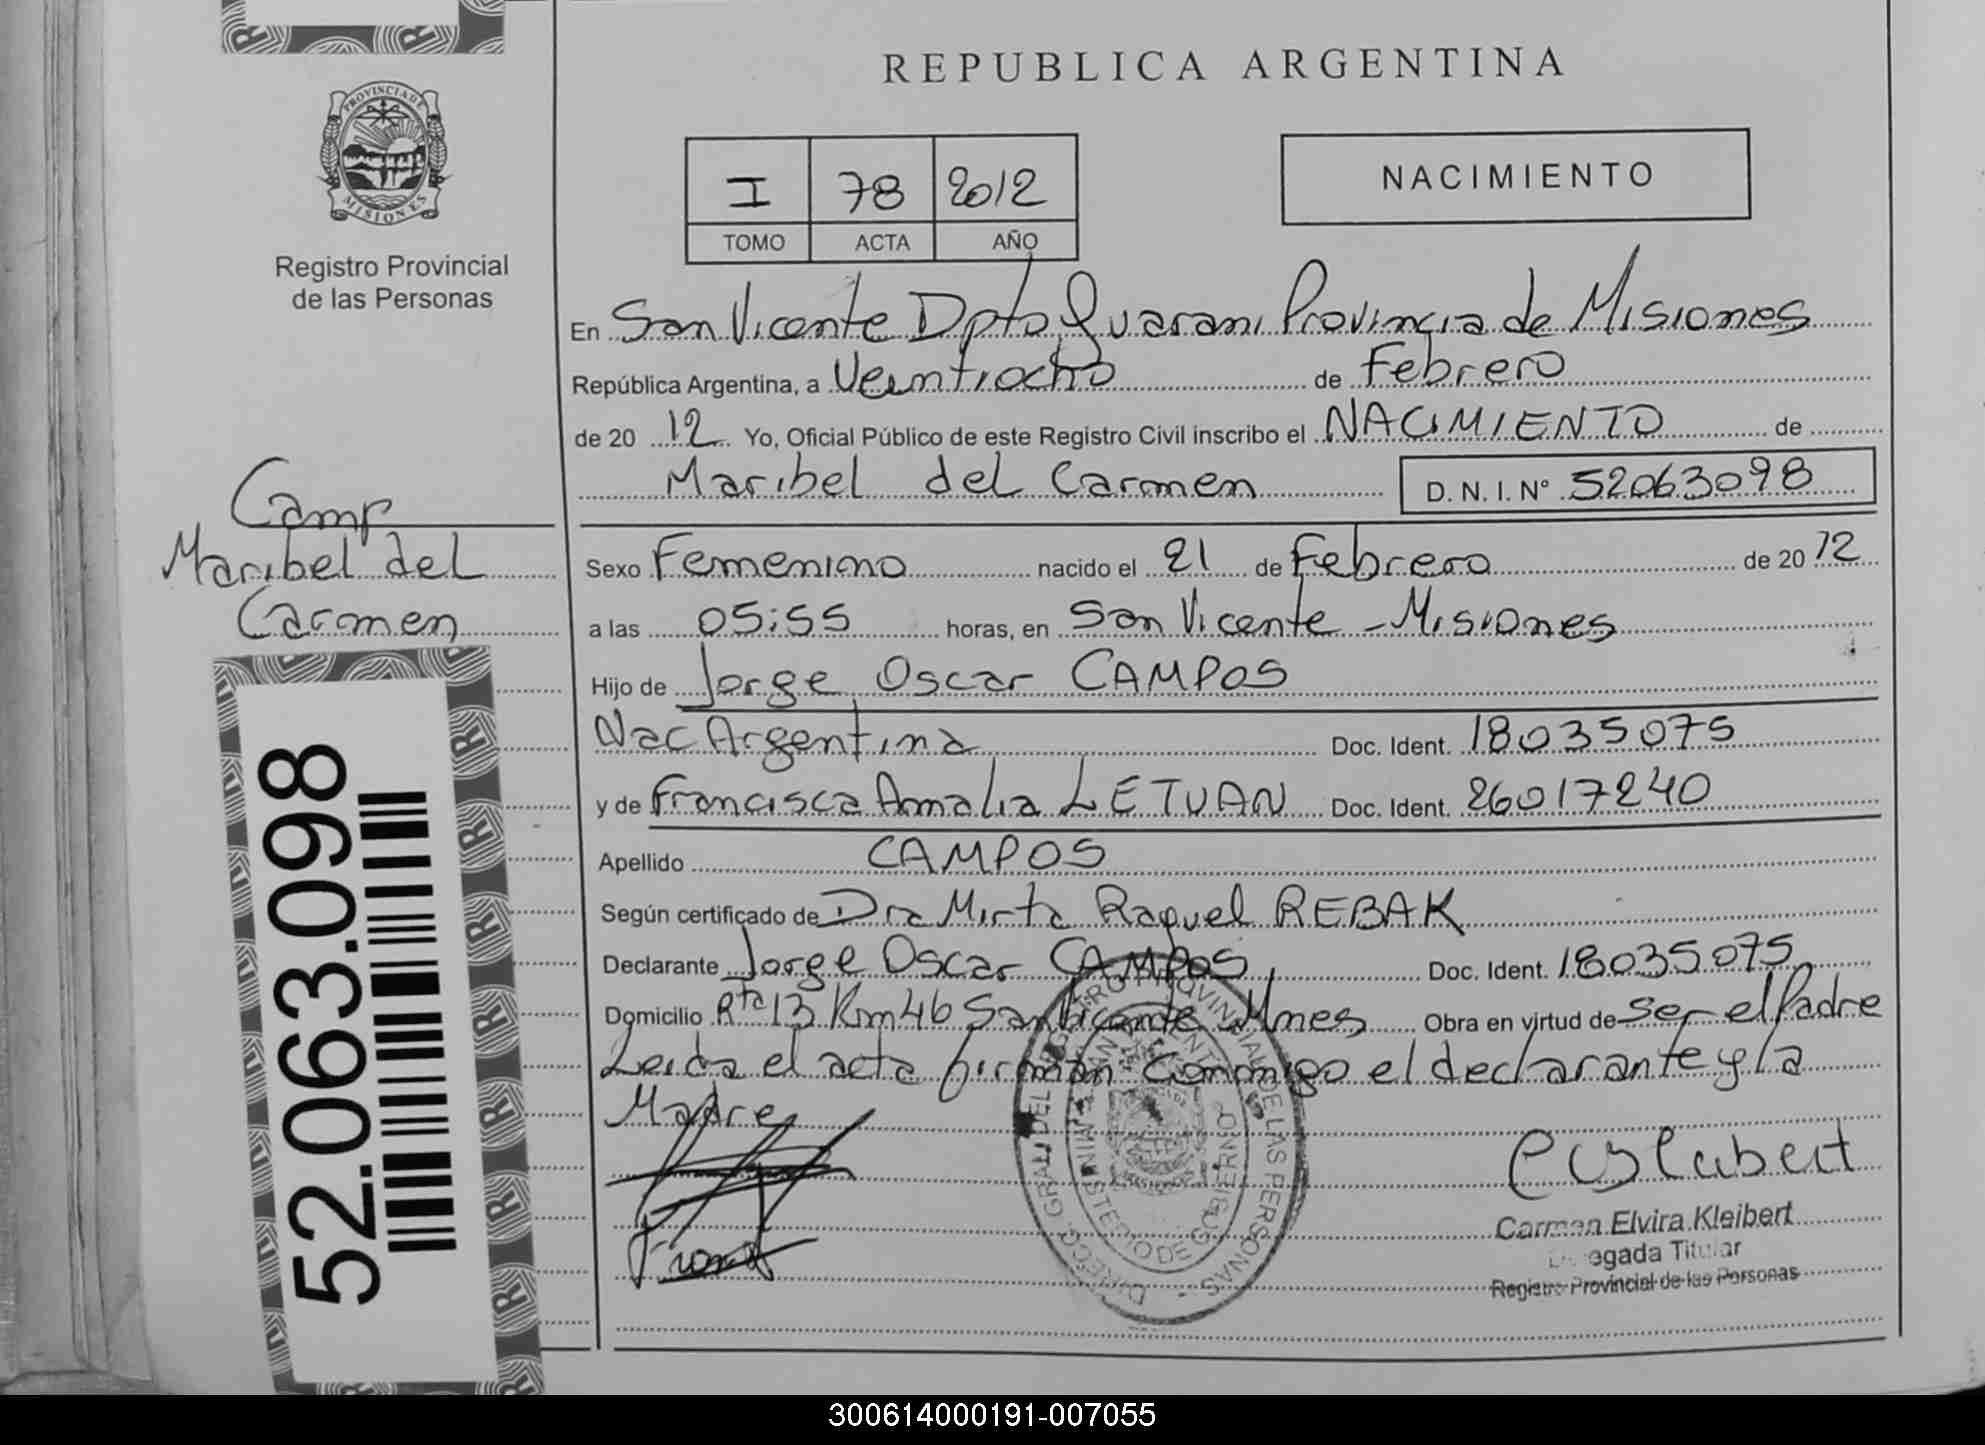 REPUBLICA ARGENTINA
PROVINCIA DE
MISIONES
Registro Provincial
de las Personas
I 78 2012
TOMO ACTA AÑO
NACIMIENTO
En San Vicente Dpto Guarani Provincia de Misiones
República Argentina, a Veintiocho de Febrero
de 20 12 Yo, Oficial Público de este Registro Civil inscribo el NACIMIENTO de
Maribel del Carmen D.N.I. Nº 52063098
Camp
Maribel del
Carmen
Sexo Femenino nacido el 21 de Febrero de 20 12
a las 05:55 horas, en San Vicente - Misiones
Hijo de Jorge Oscar CAMPOS
Nac Argentina Doc. Ident. 18035075
y de Francisca Amalia LETUAN Doc. Ident. 26017240
Apellido CAMPOS
Según certificado de Dra Mirta Raquel REBAK
Declarante Jorge Oscar CAMPOS, Doc. Ident. 18035075
Domicilio Rta 13 Km 46 San Vicente Mnes Obra en virtud de Ser el Padre
Leida el acta firman Conmigo el declarante y la
Madre
52.063.098
DIRECC. GRAL. DEL REGISTRO PROVINCIAL DE LAS PERSONAS
MINISTERIO DE GOBIERNO
Carmen Elvira Kleibert
Delegada Titular
Registro Provincial de las Personas
300614000191-007055